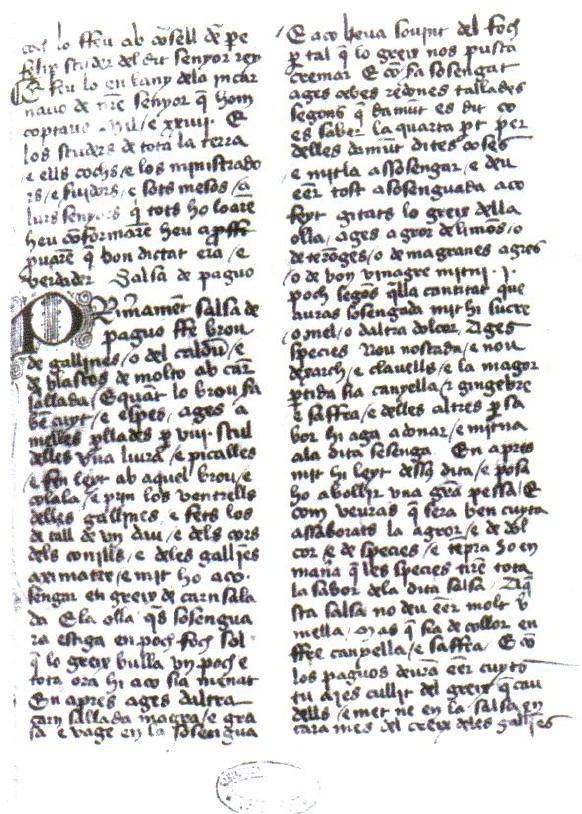 coch lo ffeu ab cõsell de pe
felip studer del dit senyor rey
E feu lo en lany dela incar
nacio de nr̃e senyor q̃ hom
coptaue . Mil e xxiiii . E
los studers de tota la terra
e ells cochs / e los ministrado
rs / e fuidors / e sots mesos / a
lurs senyors q̃ tots ho loarẽ
heu cõformarẽ heu
puarẽ q̃ bon dictat era / e
verdader Salsa de paguo
PRimamẽt salsa de
paguo ffe brou
de gallines / o del caldũ / e
de molto ab carn
sallada / E quãt lo brou sia
bẽ cuyt / e espes / ages a
melles pllades p̱ viii scul
delles vna liura / e picalles
e fen leyt ab aquel brou / e
colala / e prin los ventrells
delles gallines / e fets los
de tall de vn dau / e dels cors
dels conills / e deles gallies
aximatex / e mit ho a co
sengar en greix de carn sala
da E la olla q̃s sosengua
ra estiga en poch foch sol
q̃ lo greix bulla vn poch e
tota ora hi aco sia menat
En apres ages daltra
carn sallada magra / e gra
sa e vage en la sosengua
E aco leua souint del foch
p̱ tal q̃ lo greix nos pusca
cremar E cõ sia sosengat
ages cebes redones tallades
segons q̃ damũt es dit co
es saber la quarta p̱t per
delles damũt dites coses
e mitla assosengar / e deu
eẽr tost a sosenguada aco
feyt gitats lo greix della
olla / ages agror de limõs / o
de terõges / o de magranes agres
/ o de bon vinagre mitni . i .
poch segõs q̃lla cantitat que
auras sosengada mit hi sucre
/ o mel / o daltra dolcor Ages
species Nou noscada / e nou
dexarch / e clauells / e la magor
p̱tida sia canyella / e gingebre
e saffra / e delles altres p̱ sa
bor hi aga a donar / e mitna
ala dita sesenga En apres
mit hi leyt dessus dita / e posa
ho abollir vna grã pessa / E
com veuras q̃ sera ben cuyta
assaborats la agror / e de dol
cor / e de species / e tẽpra ho en
manã q̃ les species tirẽ tota
la sabor dela dita salsa Aq̃
sta salsa no deu eẽr molt v
mella / Mas q̃ sia de collor en
ffre canyella / e saffra / E cõ
los paguos deurã eẽr cuyts
tu ages cullit del greix q̃ cau
dells / e met ne en la salsa en
cara mes del greix deles gallies